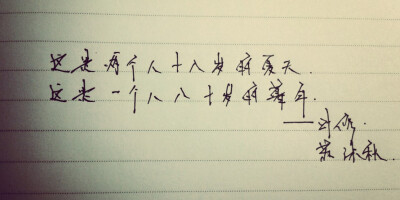 这是两个人十八岁的夏天.
这是一个人八十岁的年.
——叶修.
苏沐秋.